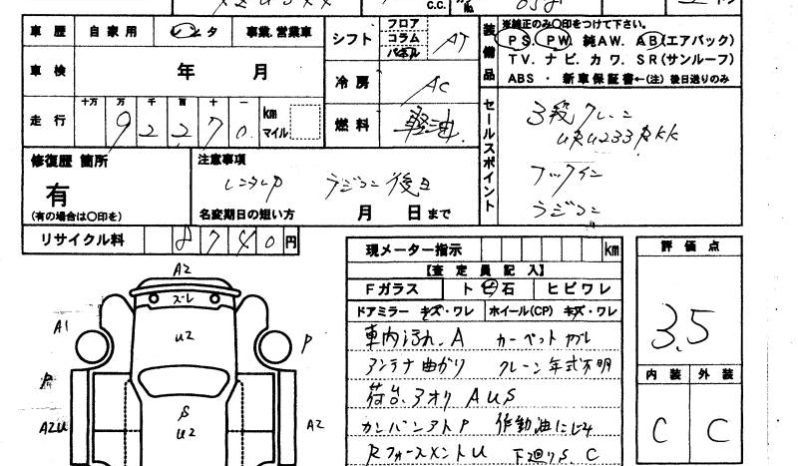 C.C.
車歴 自家用 レンタ 事業.営業車
シフト フロア コラム パネル AT
装備品 ※純正のみ○印をつけて下さい。
PS. PW. 純AW. AB(エアバック)
TV. ナビ. カワ. SR(サンルーフ)
ABS ・ 新車保証書←(注) 後日送りのみ
車検 年 月
冷房 AC
走行 十万 万 千 百 十 一
92270 km マイル
燃料 軽油
セールスポイント
3段クレーン
URU233RKK
フックイン
ラジコン
修復歴 箇所
有
(有の場合は○印を)
注意事項
レンタUP ラジコン後日
名変期日の短い方 月 日まで
リサイクル料 8740円
現メーター指示 km
【査定員記入】
Fガラス ト ビ 石 ヒビワレ
ドアミラー キズ・ワレ ホイール(CP) キズ・ワレ
車内汚れ.A カーペット
アンテナ曲がり クレーン年式不明
荷台.アオリ AUS
カンバンアトP 作動油にじみ
Rフォースメント U 下回りS C
評価点
3.5
内装 外装
C C
A2
ズレ
A1
U2
P
S
U2
A2U
A2